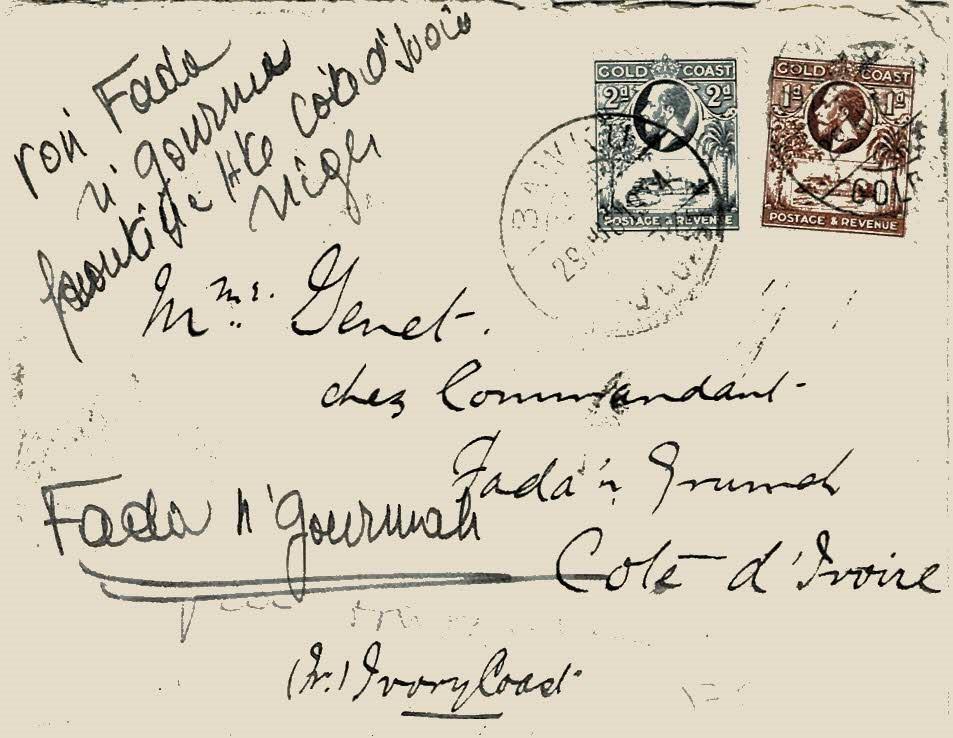 voir Fada
n' gourma
frontière Hte Côte d'Ivoire
Niger
GOLD COAST
2d 2d
POSTAGE & REVENUE
GOLD COAST
1d 1d
POSTAGE & REVENUE
BAWKU
29
GOL
Mme. Genet.
chez Commandant
Fada'n Grumah
Fada n'gourmah
Coté d'Ivoire
(Fr.) Ivory Coast